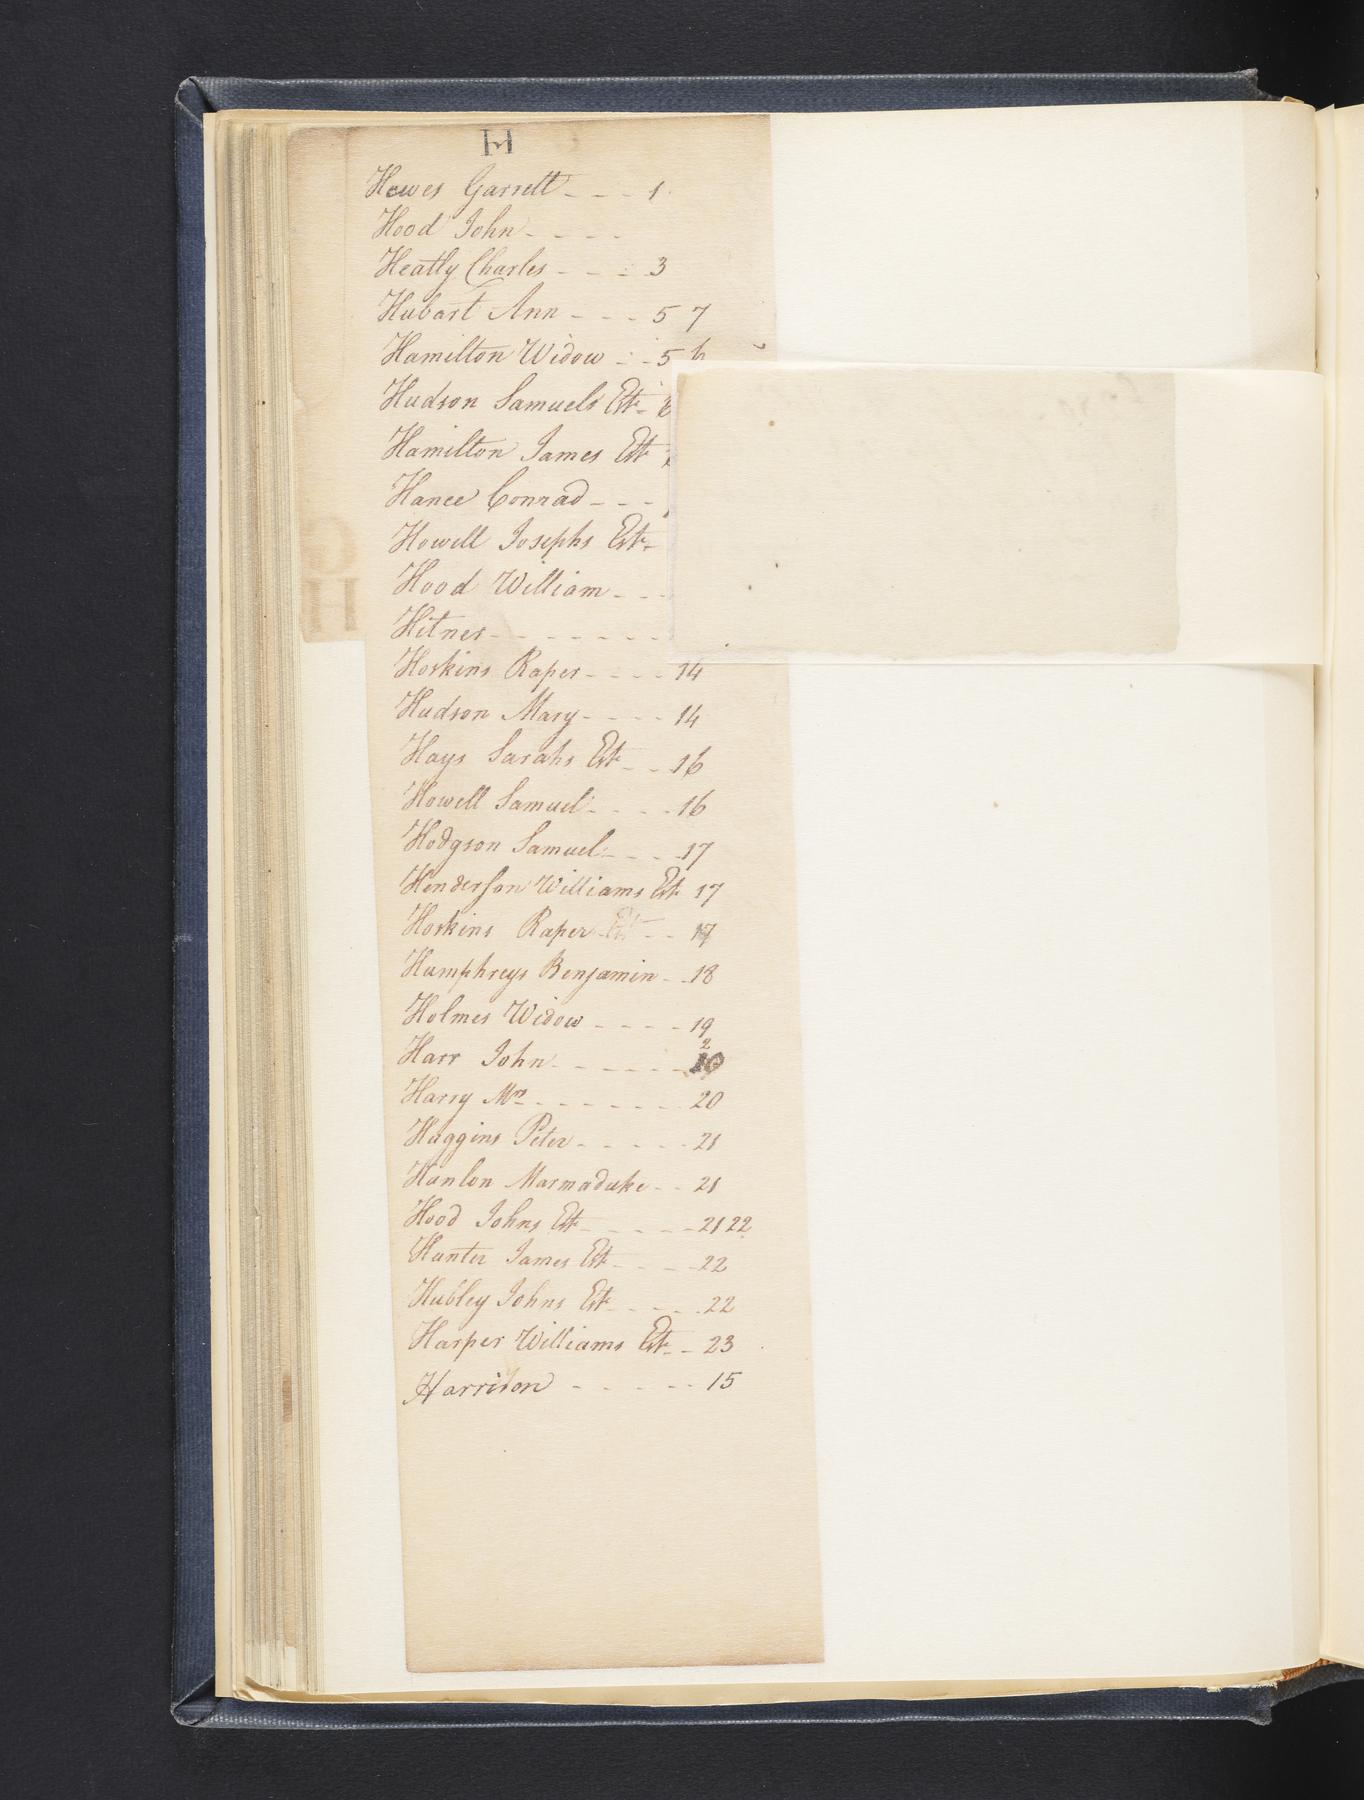 H
Hewes Garrett - - - 1
Hood John - - - -
Heatly Charles - - - 3
Hubart Ann - - - 5 7
Hamilton Widow - - 5 6
Hudson Samuels Est - 6
Hamilton James Est
Hance Conrad - - -
Howell Josephs Est -
Hood William - - -
Hitner - - - - - - -
Hoskins Raper - - - - 14
Hudson Mary - - - - 14
Hays Sarahs Est - - 16
Howell Samuel - - - - 16
Hodgson Samuel - - - 17
Henderson Williams Est 17
Hoskins Raper Est - - 17
Humphreys Benjamin - - 18
Holmes Widow - - - - 19
Harr John - - - - - -
Harry Mrs - - - - - - - 20
Huggins Peter - - - - - 21
Hanlon Marmaduke - - 21
Hood Johns Est - - - - - 21 22
Hunter James Est - - - - 22
Hubley Johns Est - - - - 22
Harper Williams Est - - 23
Harrison - - - - - - 15
G
H